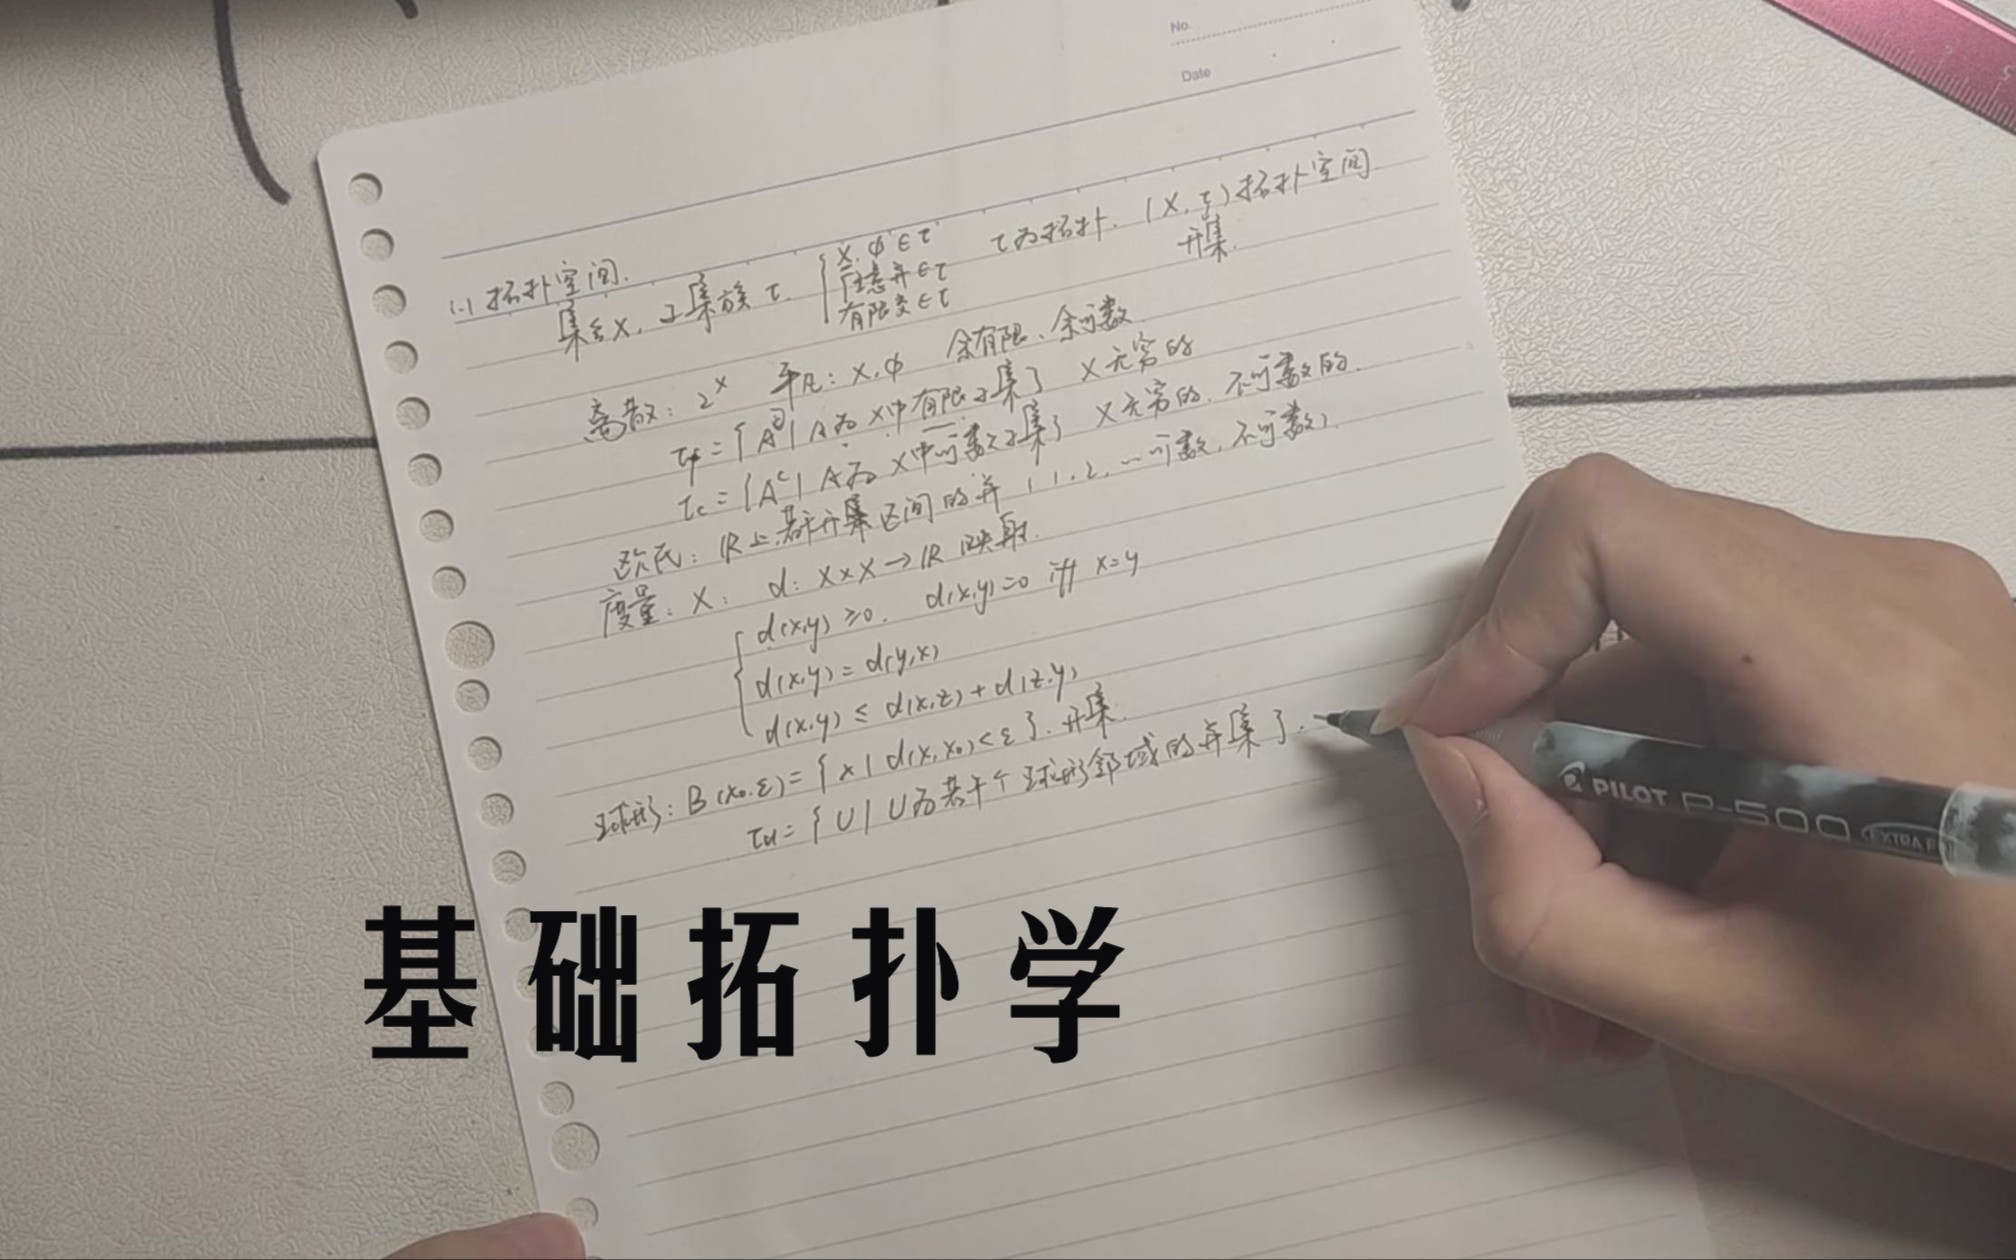 No.
Date
1.1 拓扑空间.
集合X, 子集族 τ. { X, ϕ ∈ τ 任意并 ∈ τ 有限交 ∈ τ τ为拓扑. (X, τ) 拓扑空间
开集.
离散: 2^X 平凡: X, ϕ 余有限、余可数
τf = { A^c | A为 X中有限子集 } X无穷的
τc = { A^c | A为 X中可数子集 } X无穷的, 不可数的.
欧氏: R上若干开集区间的并 (1, 2, … 可数, 不可数).
度量: X: d: X×X → R 映射.
d(x,y) ≥0. d(x,y)=0 iff x=y
d(x,y) = d(y,x)
d(x,y) ≤ d(x,z) + d(z,y)
球形: B(x₀,ε) = { x | d(x,x₀) < ε }. 开集.
τu = { U | U为若干个球形邻域的并集 }.
PILOT P-500 EXTRA F
基础拓扑学